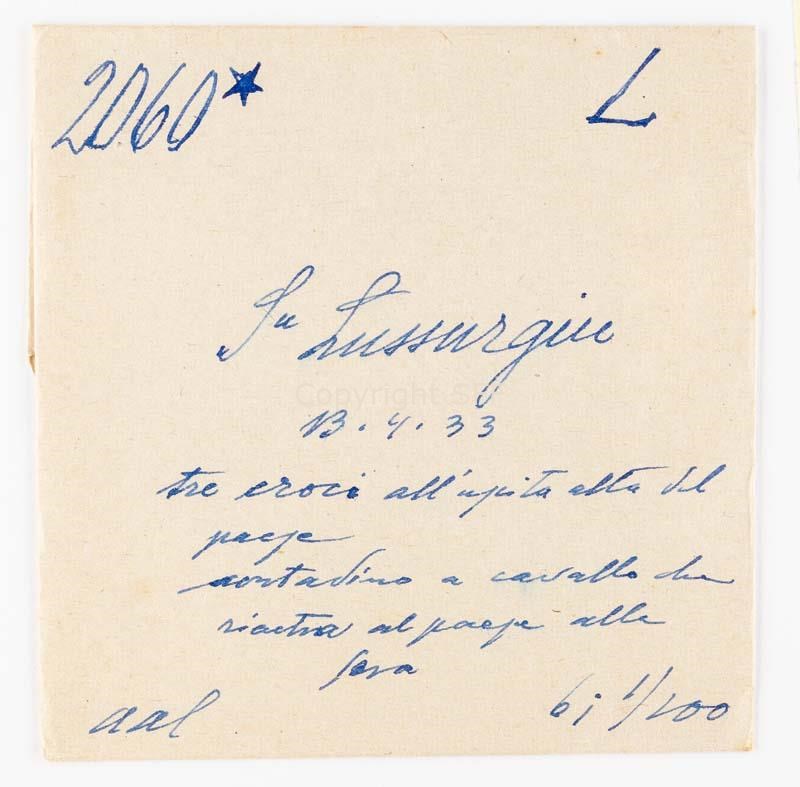 2060★ L
Su Lussurgiu
13.4.33
tre croci all'uscita alta del
paese
contadino a cavallo che
rientra al paese alla
sera
aal 6; 1/100
Copyright